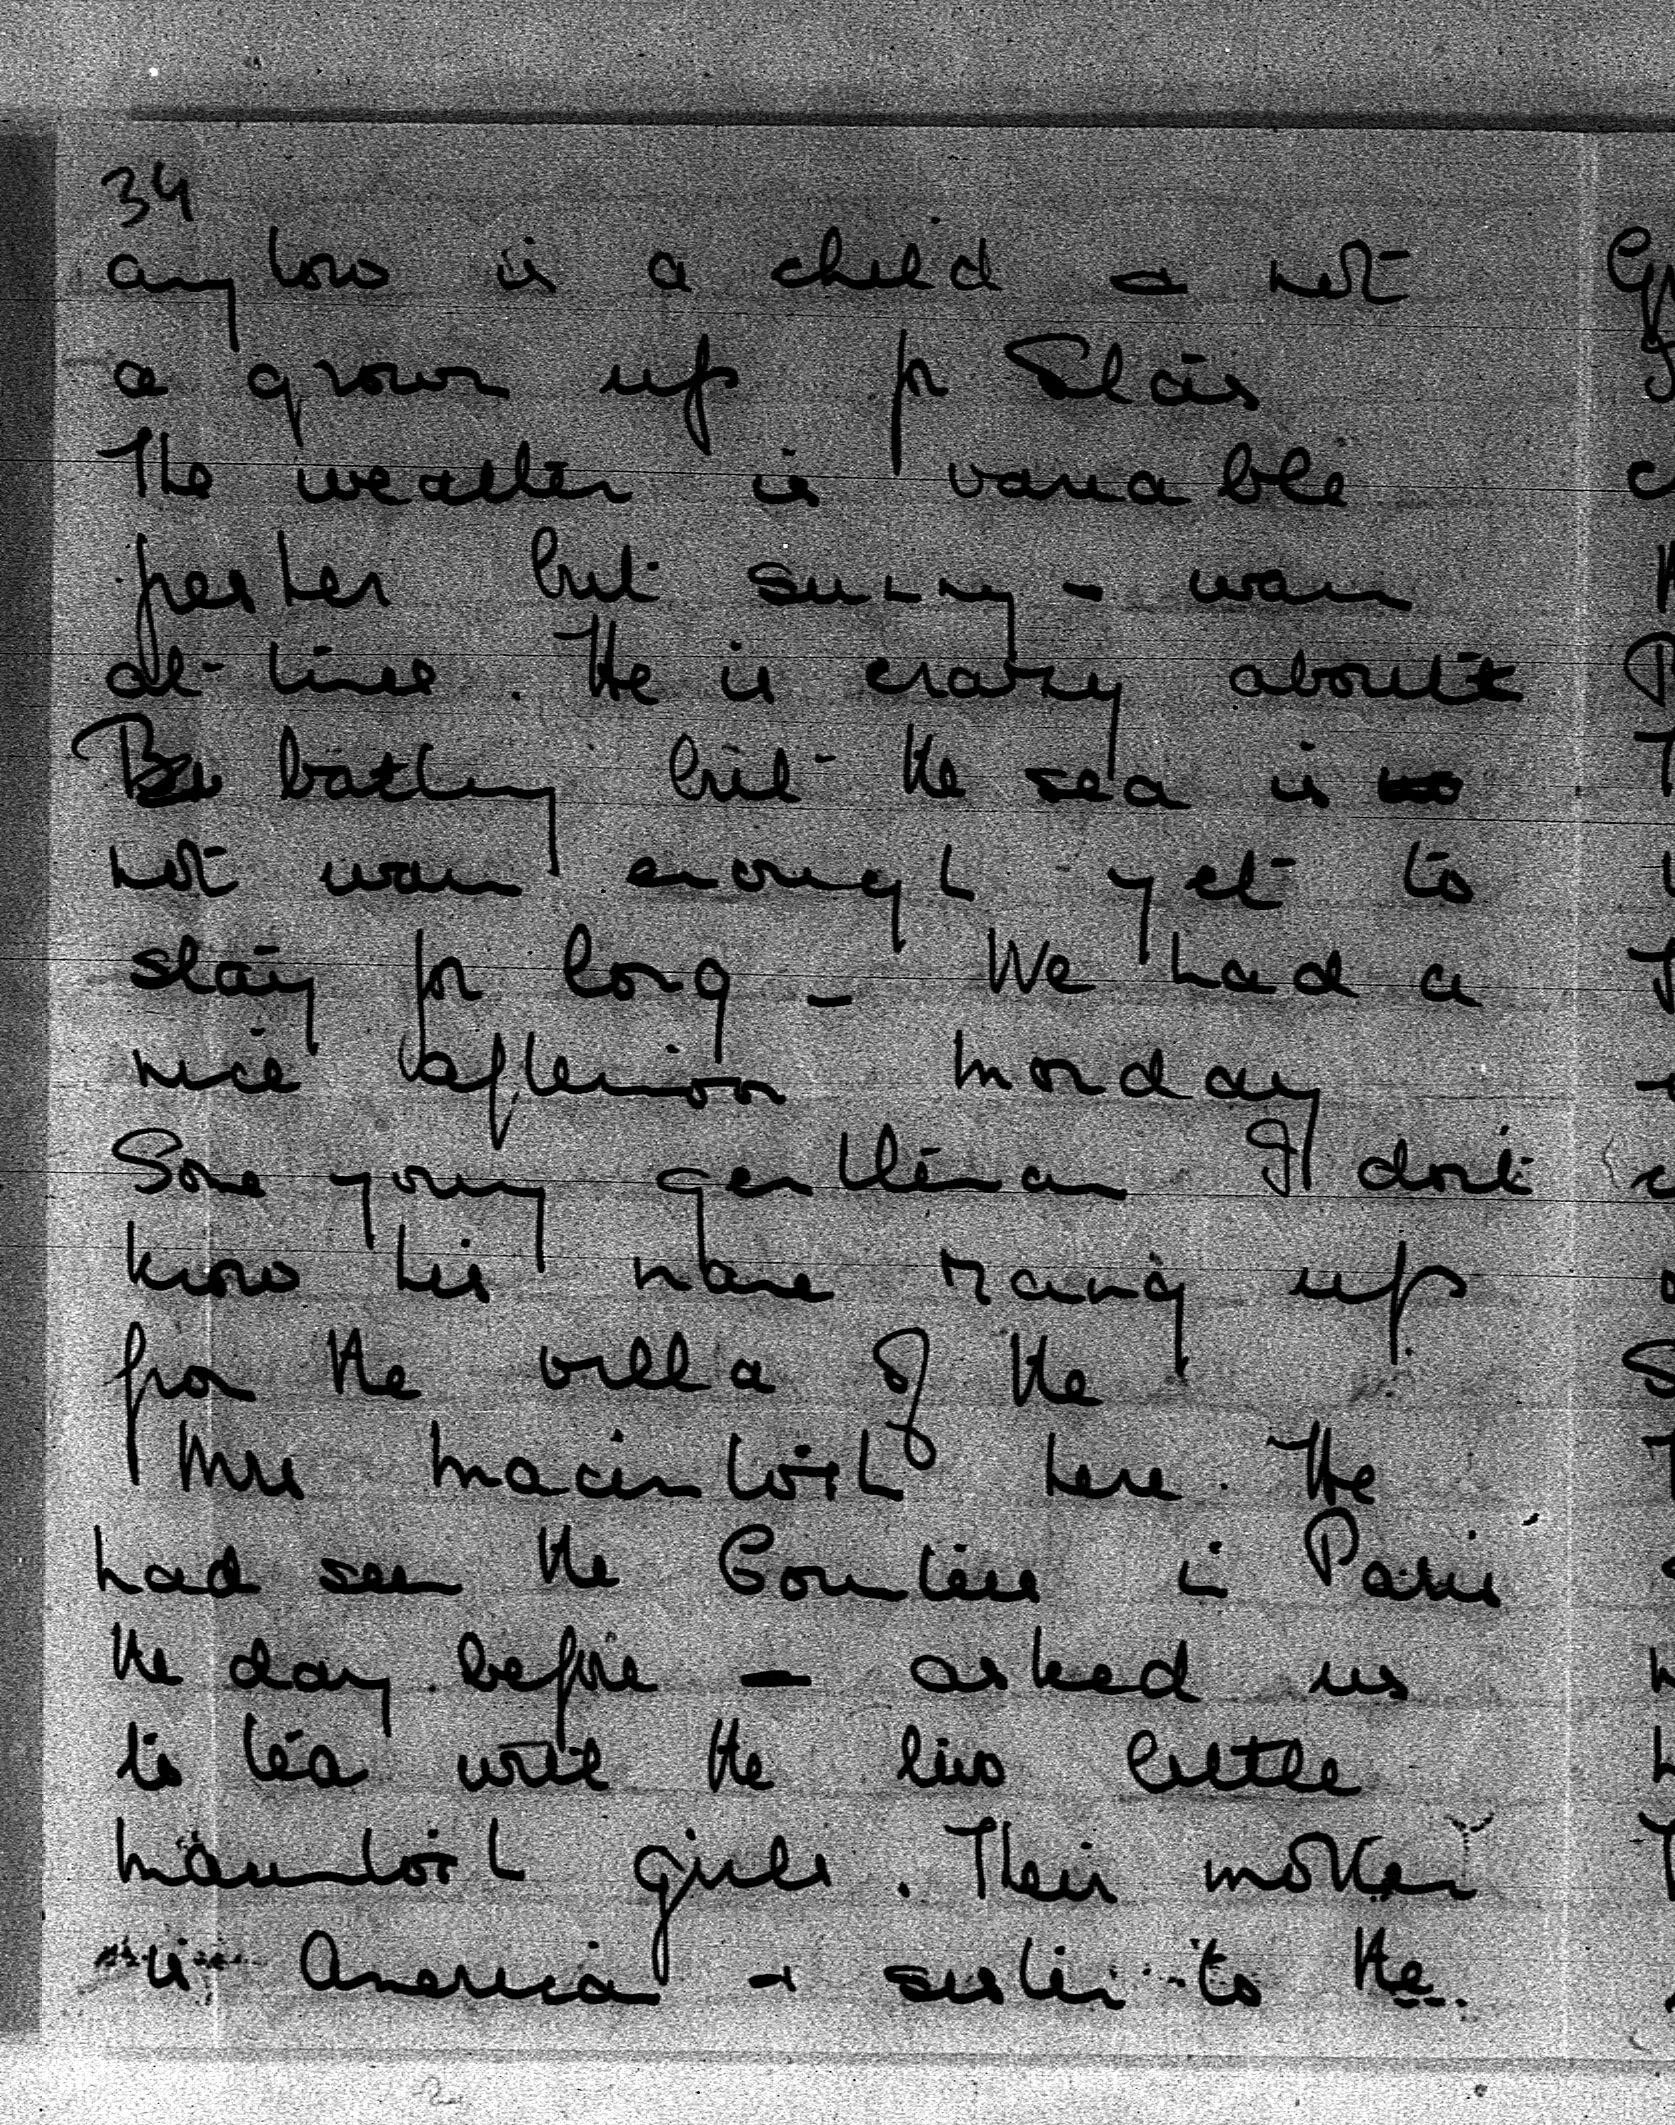 34
anyhow is a child & not
a grown up for
The weather is variable
fresher but sunny - warm
at times. He is crazy about
bathing but the sea is
not warm enough yet to
stay for long - We had a
nice afternoon Monday
Some young gentleman I don't
know his name rang up
from the villa of the
Mrs Macintosh here. He
had seen the Countess in Paris
the day before - asked us
to tea with the two little
Macintosh girls. Their mother
is American & sister to the